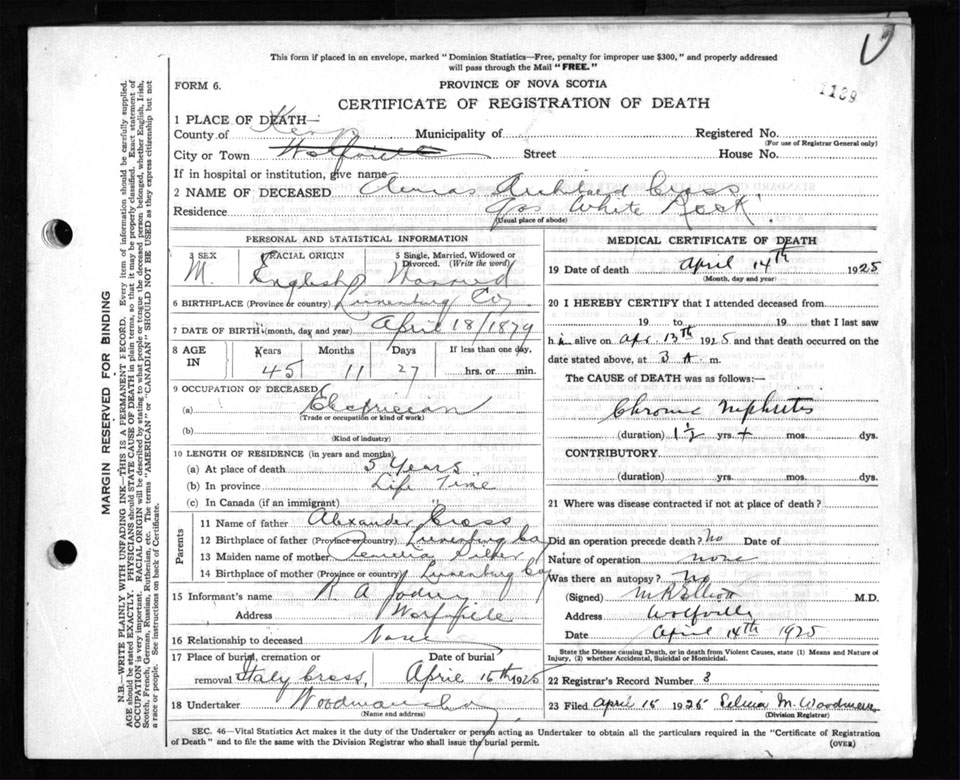 This form if placed in an envelope, marked "Dominion Statistics—Free, penalty for improper use $300," and properly addressed
will pass through the Mail "FREE."
FORM 6.
PROVINCE OF NOVA SCOTIA
1139
CERTIFICATE OF REGISTRATION OF DEATH
1 PLACE OF DEATH—
County of Kings Municipality of Registered No.
(For use of Registrar General only)
City or Town Wolfville Street House No.
If in hospital or institution, give name
2 NAME OF DECEASED Archibald Cross
Residence White Rock
(Usual place of abode)
PERSONAL AND STATISTICAL INFORMATION
3 SEX 4 RACIAL ORIGIN 5 Single, Married, Widowed or Divorced. (Write the word)
M. English Married
6 BIRTHPLACE (Province or country) Lunenburg Co
7 DATE OF BIRTH (month, day and year) April 18/1879
8 AGE IN Years Months Days If less than one day,
45 11 27 hrs. or min.
9 OCCUPATION OF DECEASED
(a) Electrician
(Trade or occupation or kind of work)
(b)
(Kind of industry)
10 LENGTH OF RESIDENCE (in years and months)
(a) At place of death 5 Years
(b) In province Life Time
(c) In Canada (if an immigrant) "
Parents
11 Name of father Alexander Cross
12 Birthplace of father (Province or country) Lunenburg Co
13 Maiden name of mother
14 Birthplace of mother (Province or country) Lunenburg Co
15 Informant's name R A Jodrey
Address Wolfville
16 Relationship to deceased None
17 Place of burial, cremation or removal Date of burial
Cross, April 16th 1925
18 Undertaker Woodman
(Name and address)
MEDICAL CERTIFICATE OF DEATH
19 Date of death April 14th 1925
(Month, day and year)
20 I HEREBY CERTIFY that I attended deceased from
19 to 19 that I last saw
him alive on Apr 13th 1925 and that death occurred on the
date stated above, at 3 A m.
The CAUSE OF DEATH was as follows:—
Chronic Nephritis
(duration) 1½ yrs. + mos. dys.
CONTRIBUTORY
(duration) yrs. mos. dys.
21 Where was disease contracted if not at place of death?
Did an operation precede death? No Date of
Nature of operation none
Was there an autopsy? No
(Signed) M R Elliott M.D.
Address Wolfville
Date April 14th 1925
State the Disease causing Death, or in death from Violent Causes, state (1) Means and Nature of
Injury, (2) whether Accidental, Suicidal or Homicidal.
22 Registrar's Record Number 3
23 Filed April 15 1925 M. Woodman
(Division Registrar)
SEC. 46—Vital Statistics Act makes it the duty of the Undertaker or person acting as Undertaker to obtain all the particulars required in the "Certificate of Registration
of Death" and to file the same with the Division Registrar who shall issue the burial permit.
(OVER)
MARGIN RESERVED FOR BINDING
N.B.—WRITE PLAINLY WITH UNFADING INK—THIS IS A PERMANENT RECORD. Every item of information should be carefully supplied.
AGE should be stated EXACTLY. PHYSICIANS should STATE CAUSE OF DEATH in plain terms, so that it may be properly classified. Exact statement of
OCCUPATION is very important. RACIAL ORIGIN will be described by stating to what people or tongue the deceased person belonged, whether English, Irish,
Scotch, French, German, Russian, Ruthenian, etc. The terms "AMERICAN" or "CANADIAN" SHOULD NOT BE USED as they express citizenship but not
a race or people. See instructions on back of Certificate.